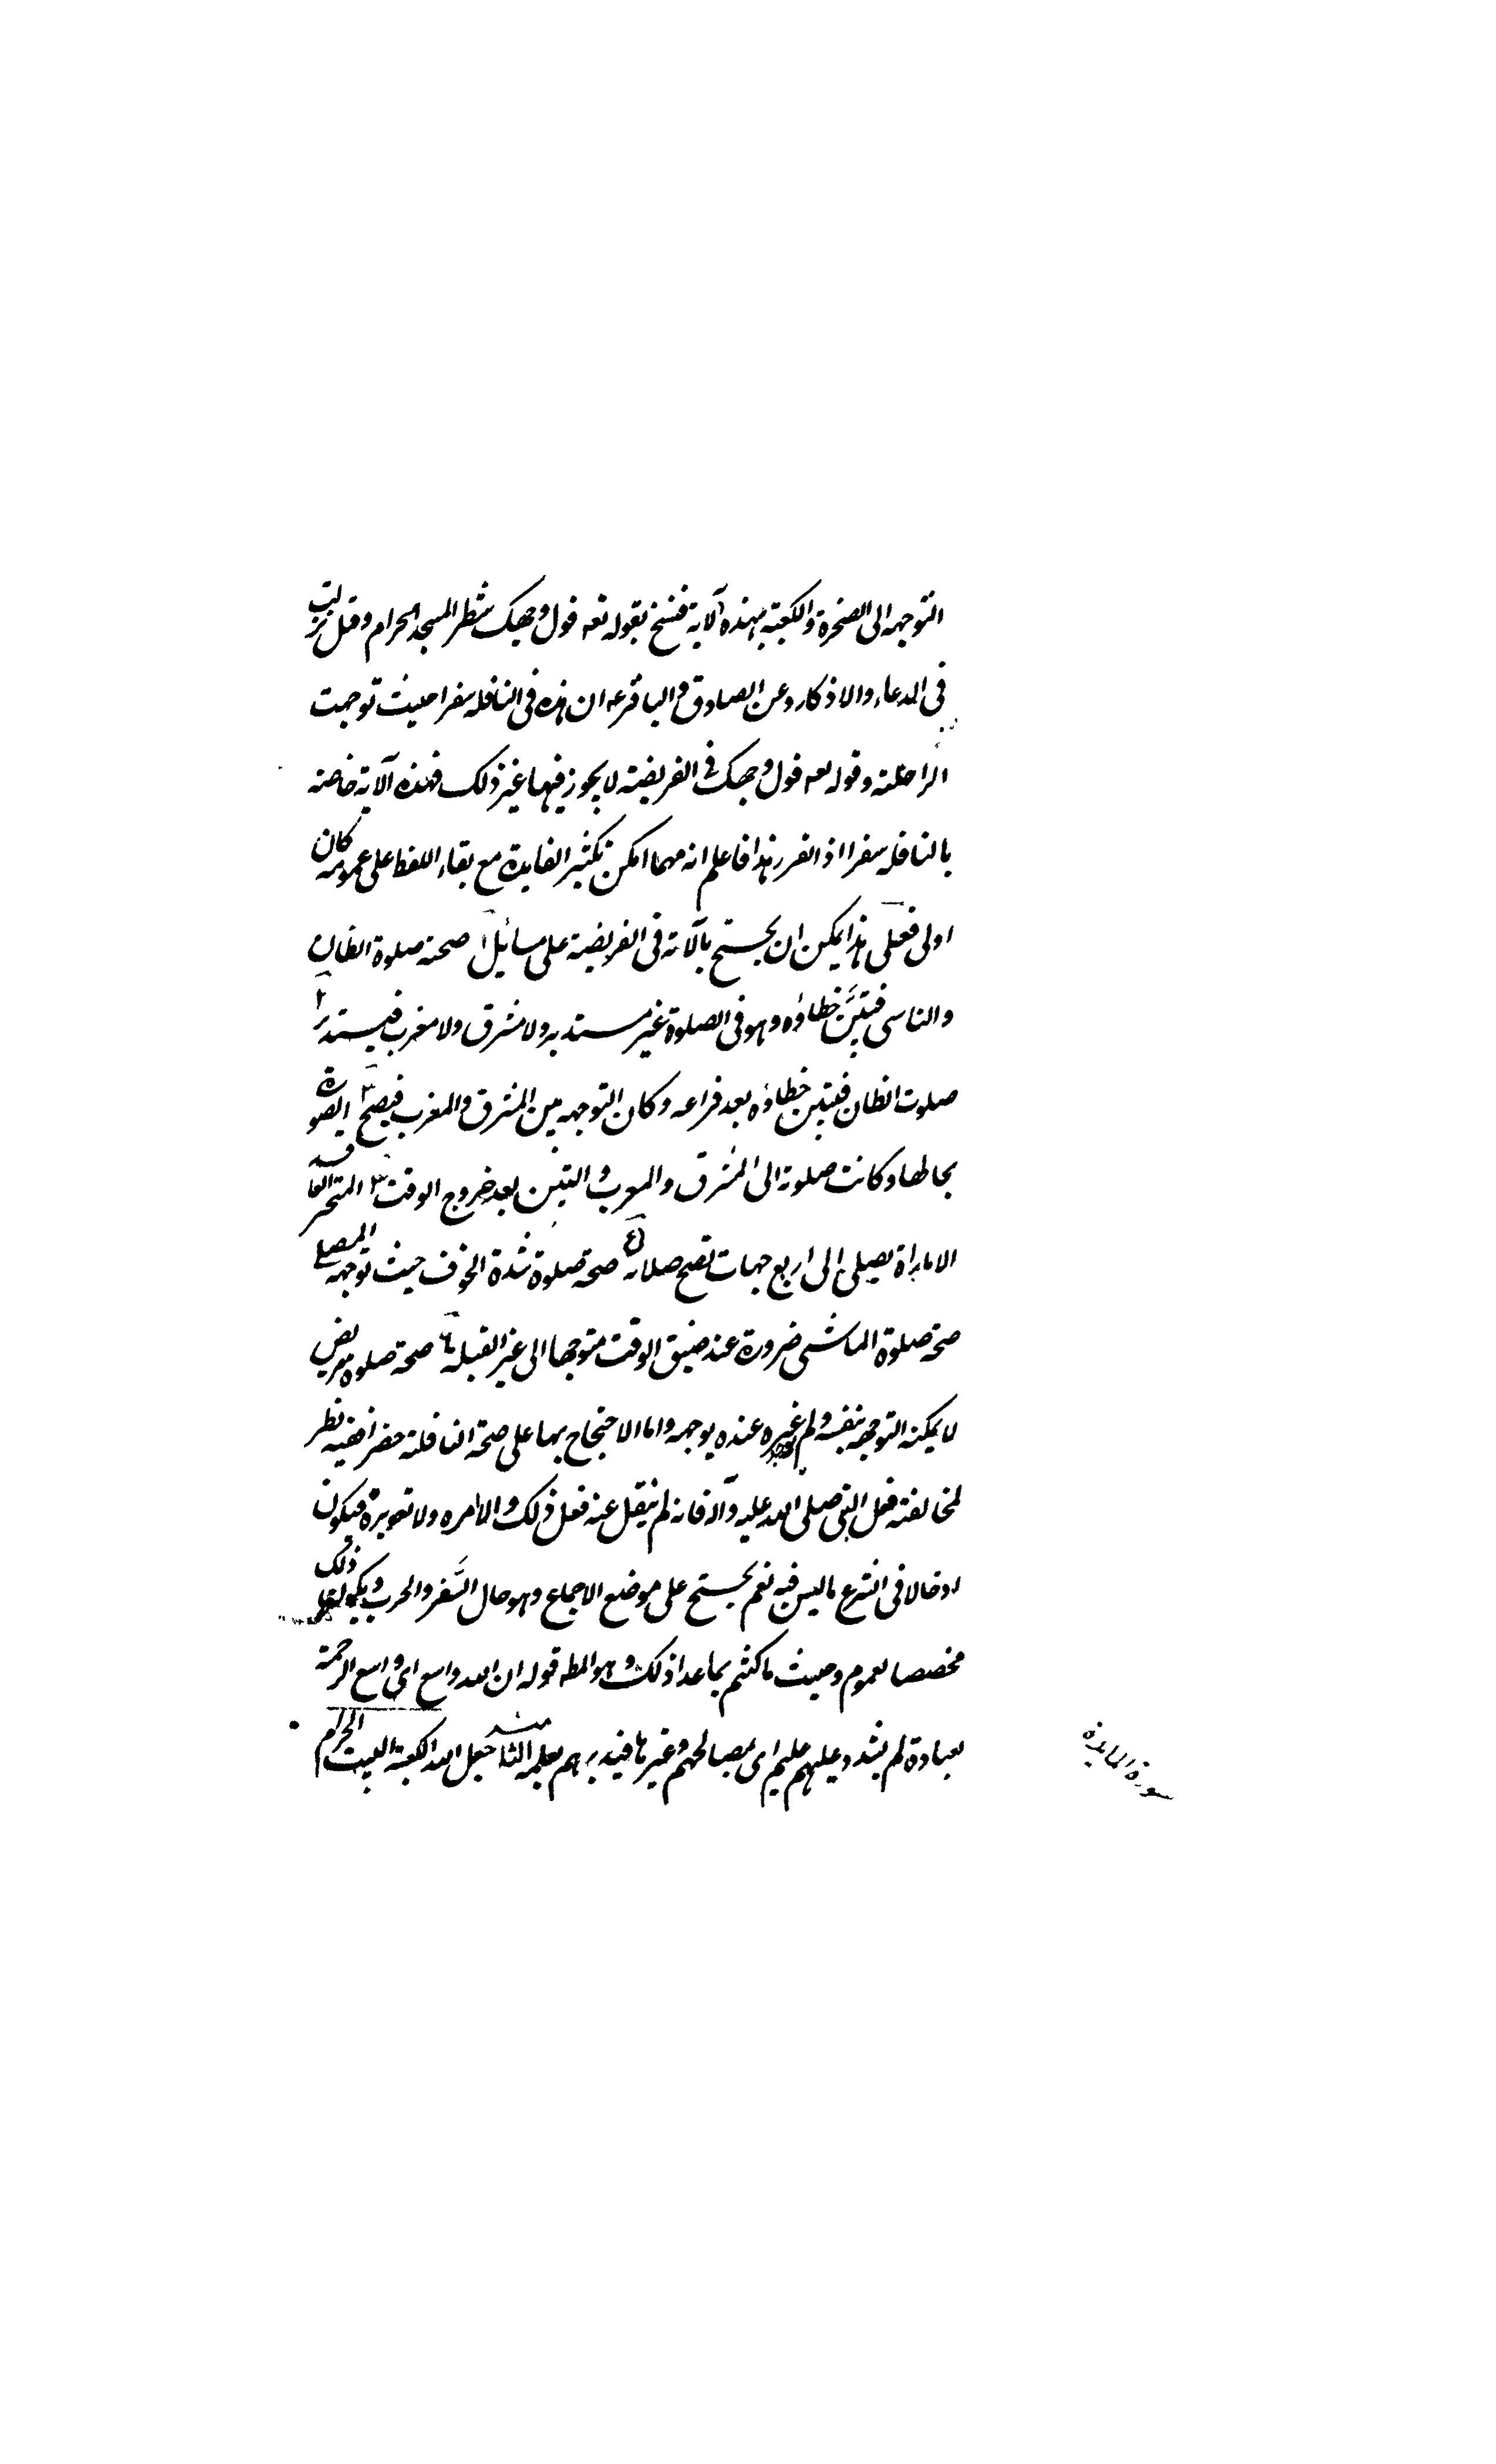 التوجه الى الصخرة والكعبة بهذه الآية فنسخ بقوله تعه فول وجهك شطر المسجد الحرام وقيل نزلت
فى الدعاء والاذكار وعن الصادق والباقر عه ان هذه فى النافله سفرا حيث توجهت
الراحلة وقوله تعه فول وجهك فى الفريضة لا يجوز فيها غير ذلك فهذه الآية خاصة
بالنافله سفرا اذا تقرر هذا فاعلم انه مهما امكن تكثير الفايدة مع بقاء اللفظ على عمومه كان
اولى فعلى هذا يمكن ان يحتج بالآية فى الفريضة على مسائل ا صحة صلوة الظان
والناسى فتبيّن خطاؤه وهو فى الصلوة غير مستدبر ولا مشرق ولا مغرب فيستدير ٢
صلوت الظان فتبين خطاؤه بعد فراغه وكان التوجه بين المشرق والمغرب فيصح ٣ الصورة
بحالها وكانت صلوته الى المشرق والمغرب والتبين بعد خروج الوقت ٤ المتحير الفاقد
الامارة يصلى الى اربع جهات تصح صلاته ٥ صحة صلوة شدة الخوف حيث توجه المصلى
صحة صلوة الماشى ضرورة عند ضيق الوقت متوجها الى غير القبلة ٦ صحة صلوة مريض
لا يمكنه التوجه بنفسه ولم يوجد غيره عنده يوجهه واما الاحتجاج بها على صحة النافلة حضرا ففيه نظر
لمخالفته فعل النبى صلى الله عليه وآله فانه لم ينقل عنه فعل ذلك ولا امره ولا تقريره فيكون
ادخالا فى الشرع ما ليس فيه نعم يحتج على موضع الاجماع وهو حال السَّفر والحرب ويكون ذلك
مخصصا لعموم وحيث ما كنتم بما عدا ذلك وهو المط قوله ان الله واسع اى واسع الرحمة
بعباده لم يشدد عليهم عليم اى بمصالحهم وغيرها فيدبرهم بعلمه الثا جعل الله الكعبة البيت الحرام
سورة المايدة